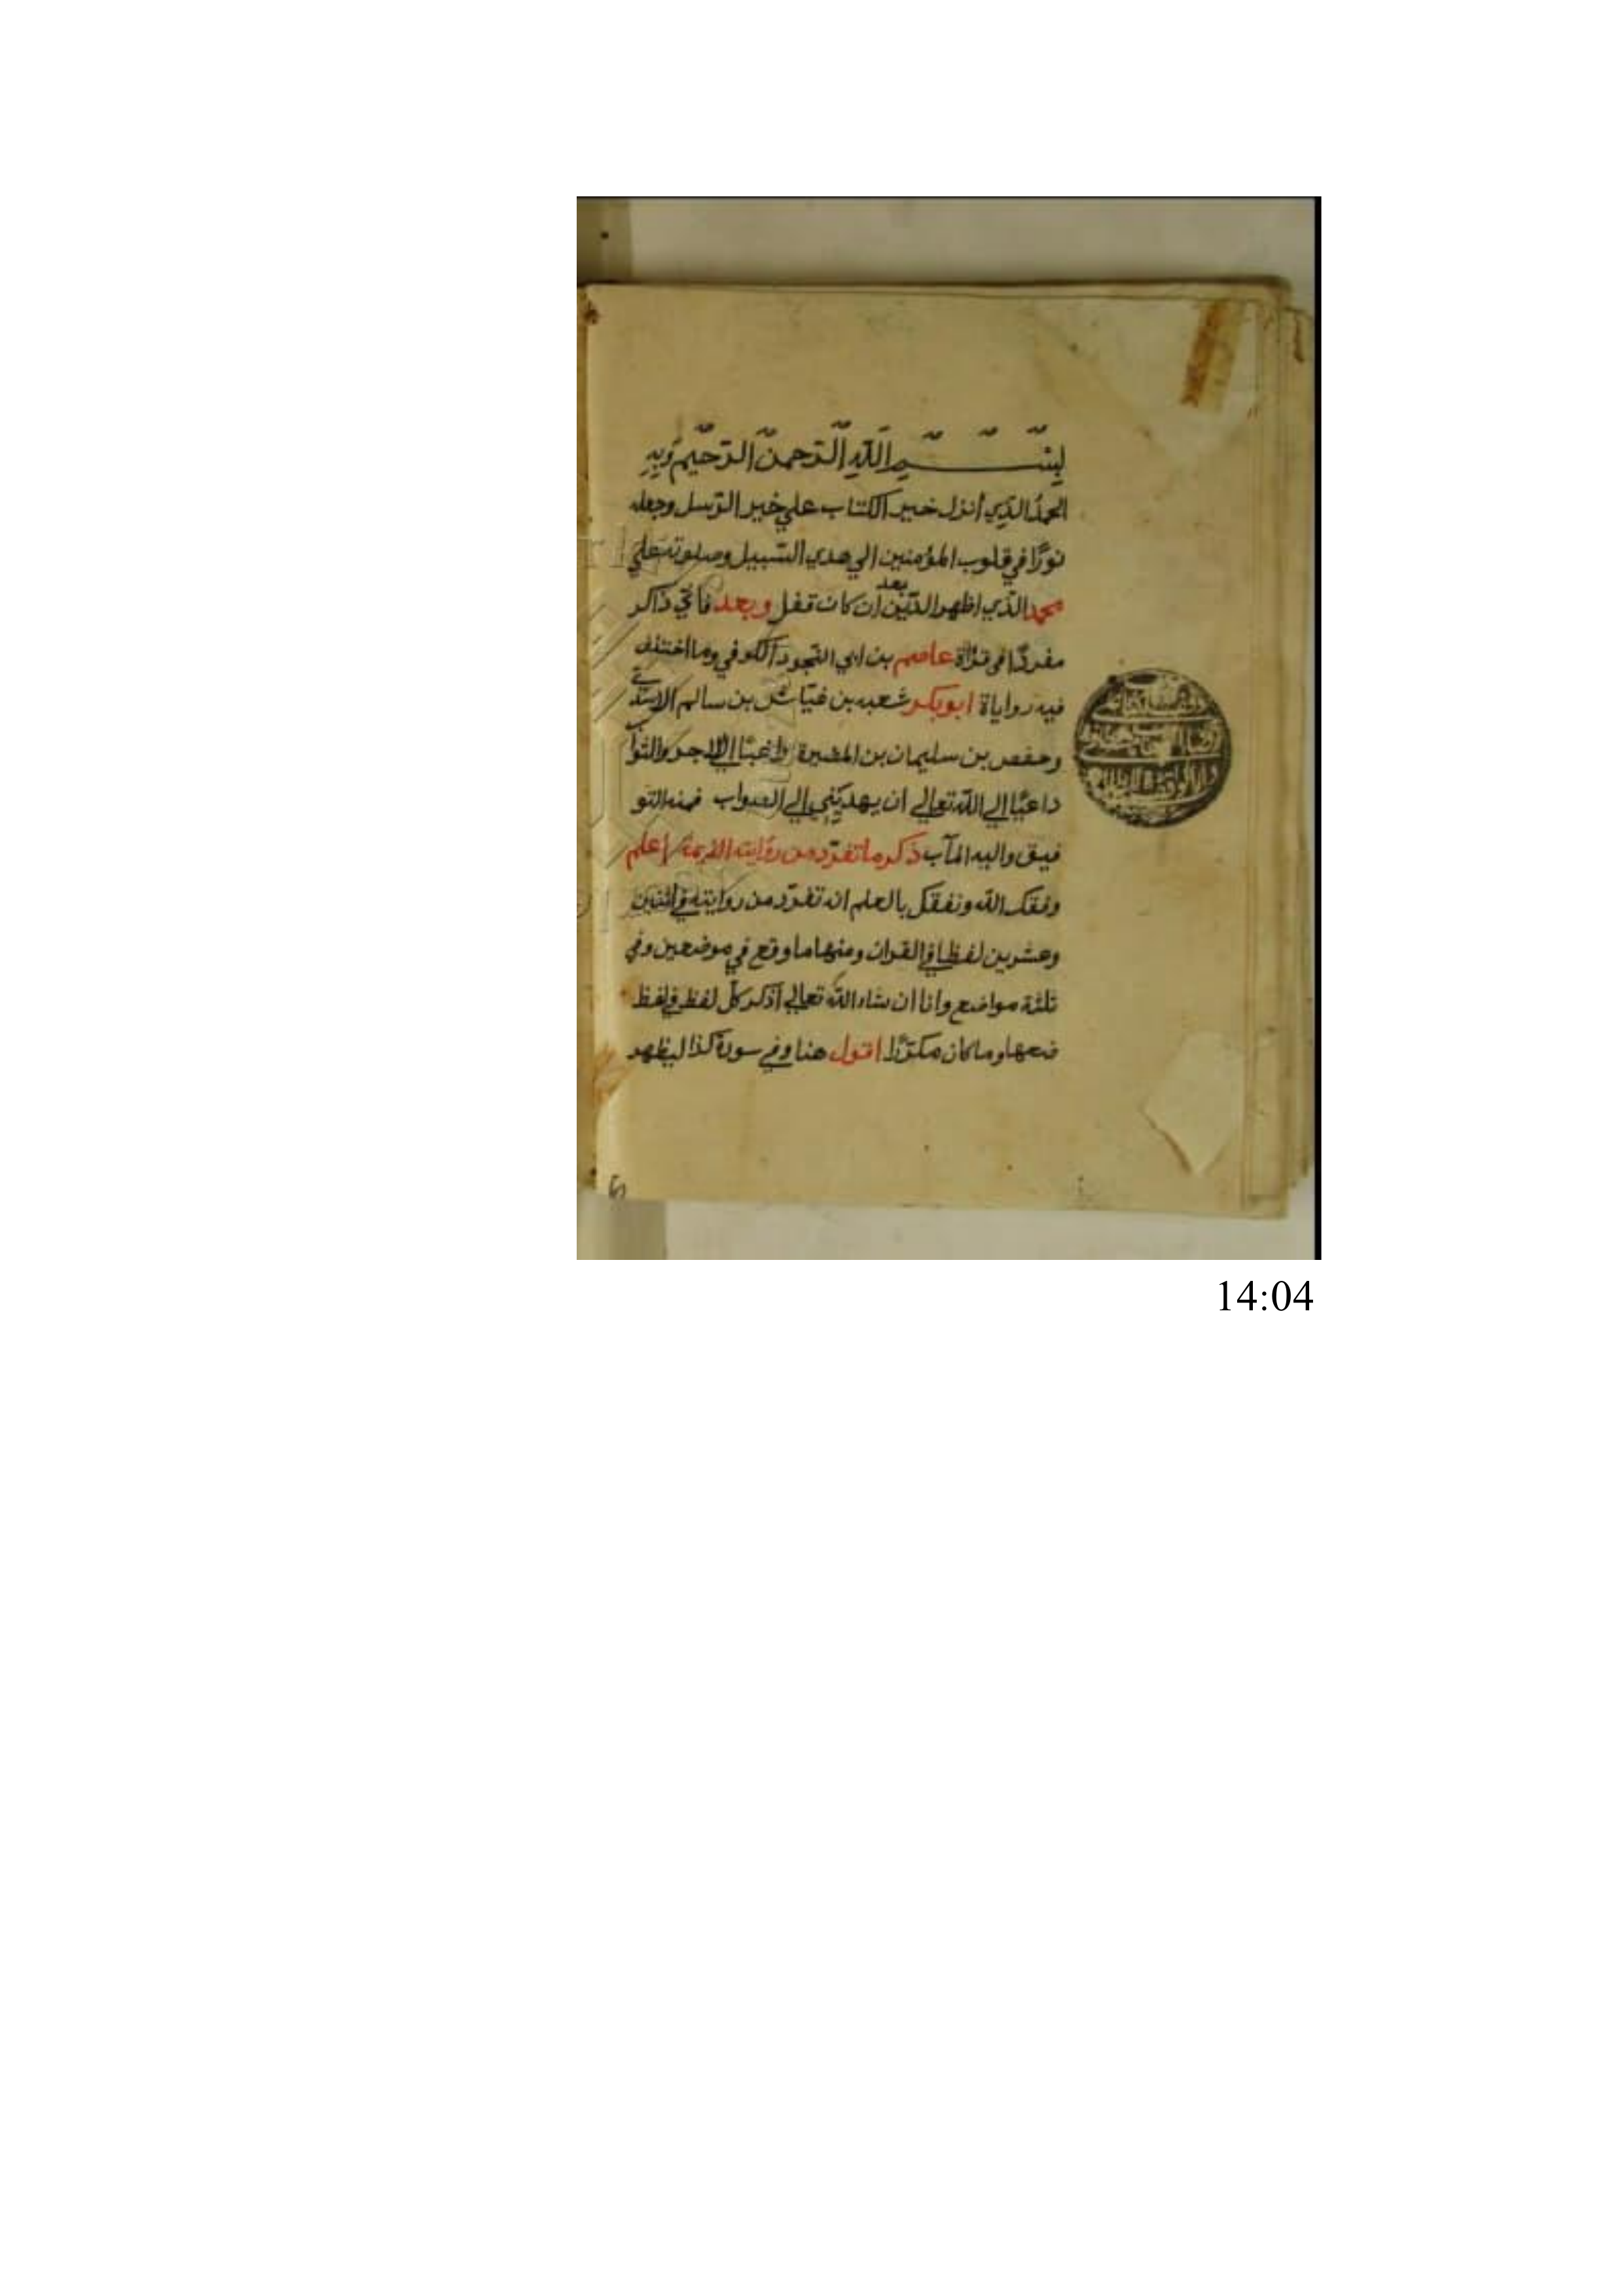 بِسْــــمِ اللّٰهِ الرَّحمنِ الرَّحيمِ وَبِهِ
الحمدُ الذي أنزل خير الكتاب علي خير الرّسل وجعله
نورًا في قلوب المؤمنين الي هدي السّبيل وصلوته علي
محمد الذّي اظهر الدّين بعد أن كان قفل وبعد فاني ذاكر
مفردًا في قرأة عاصم بن ابي النّجود الكوفي وما اختلف
فيه رواياة ابوبكر شعبه بن عيّاش بن سالم الاسدي
وحفص بن سليمان بن المغيرة راغبًا الي الاجر والثواب
داعيًا الي اللّه تعالي ان يهديَني الي الصواب فمنه التو
فيق واليه المآب ذكر ما تفرّد من روايته الاربعة إعلم
وفقك اللّه ونفعك بالعلم انه تفرّد من روايته في اثنين
وعشرين لفظا في القران ومنها ما وقع في موضعين وفي
ثلثة مواضع وانا ان شاء اللّه تعالي أذكر كلّ لفظ في لفظ
ضعها وما كان مكرّرًا اقول هنا وفي سورة كذا ليظهر
14:04